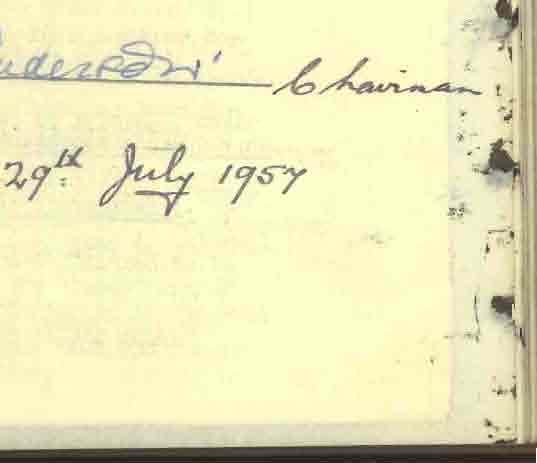 Chairman
29th July 1957